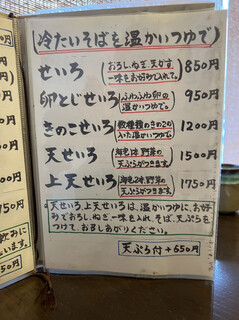 (冷たいそばを温かいつゆで)
せいろ おろし、ねぎ、天かす
一味をお好みで入れて。 850円
卵とじせいろ ふわふわ卵の
温かいつゆで。 950円
きのこせいろ 数種類のきのこが
入った温かいつゆで。 1200円
天せいろ 海老1本、野菜の
天ぷらがつきます。 1500円
上天せいろ 海老2本、野菜の
天ぷらがつきます。 1750円
天せいろ、上天せいろは、温かいつゆに、お好
みでおろし、ねぎ、一味を入れ、そば、天ぷらを
つけて、お召しあがりください。
天ぷら付 +650円